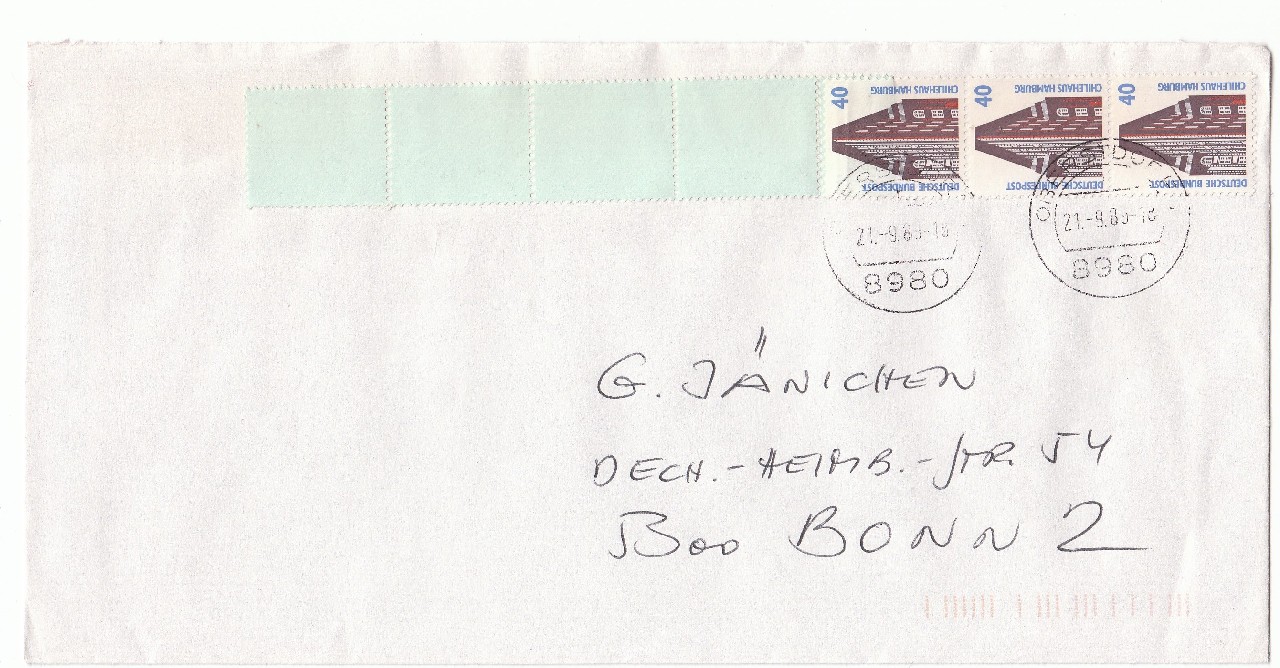 40 CHILEHAUS HAMBURG
DEUTSCHE BUNDESPOST
40 CHILEHAUS HAMBURG
DEUTSCHE BUNDESPOST
40 CHILEHAUS HAMBURG
DEUTSCHE BUNDESPOST
8980
8980
G. JÄNICHEN
DECH.-HEIMB.-STR. 54
5300 BONN 2